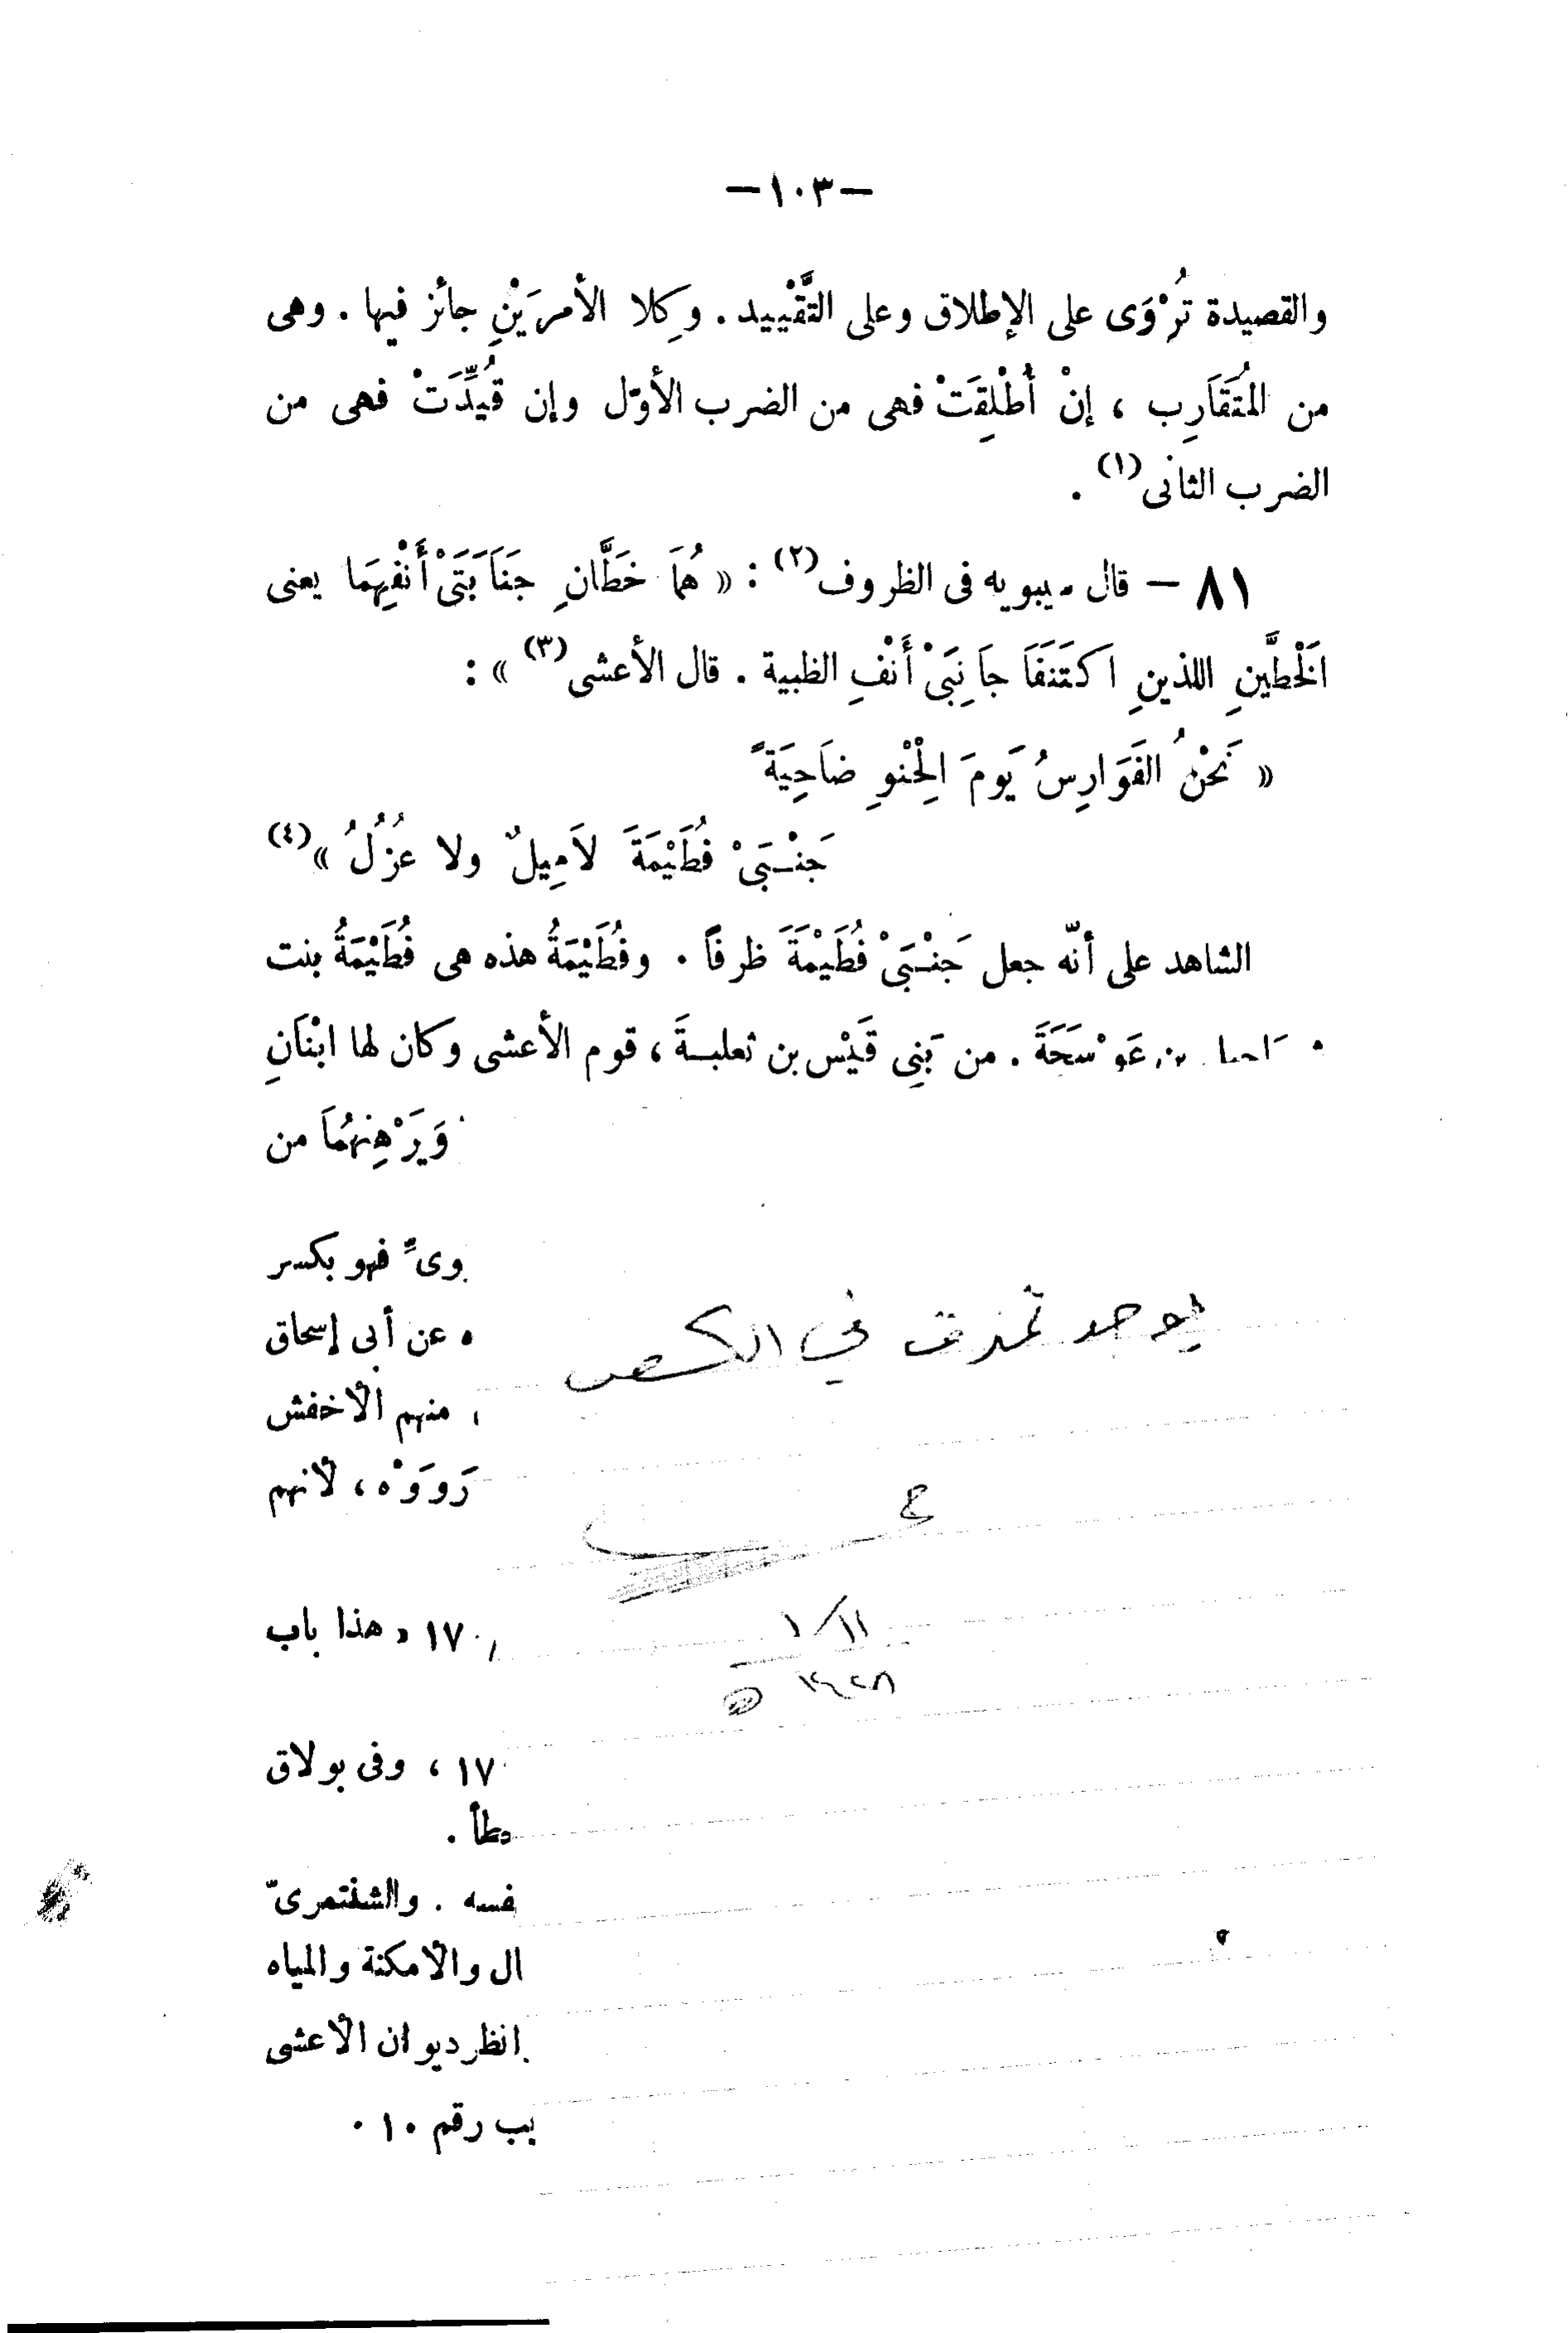 —١٠٣—
والقصيدة تُرْوَى على الإطلاق وعلى التَّقْييد . وكِلا الأمرَيْنِ جائز فيها . وهى
من المُتَقَارِب ، إنْ أُطْلِقَتْ فهى من الضرب الأوّل وإن قُيِّدَتْ فهى من
الضرب الثانى(١) .
٨١ — قال سيبويه فى الظروف(٢) : « هُمَا خَطَّانِ جَنَابَتَىْ أَنْفِهِمَا يعنى
الَخْطَّينِ اللذينِ اكتَنَفَا جَانِبَىْ أَنْفِ الظبية . قال الأعشى(٣) » :
« نَحْنُ الفَوَارِسُ يَومَ الِحْنْوِ ضَاحِيَةً
جَنْـبَىْ فُطَيْمَةَ لاَمِيلٌ ولا عُزُلُ »(٤)
الشاهد على أنّه جعل جَنْـبَىْ فُطَيْمَةَ ظرفاً . وفُطَيْمَةُ هذه هى فُطَيْمَةُ بنت
من بَنِى قَيْس بن ثعلبـةَ ، قوم الأعشى وكان لها ابْنَانِ
وَيَرْهِنهُمَا من
وىً فهو بكسر
ه عن أبى إسحاق
يوجد تمزق في الكعب
، منهم الأخفش
رَوَوْه ، لأنهم
١١/١
١٧٠ « هذا باب
١٧ ، وفى بولاق
طأ .
فسه . والشنتمرىّ
ال والأمكنة والمياه
انظر ديوان الأعشى
يب رقم ١٠ .